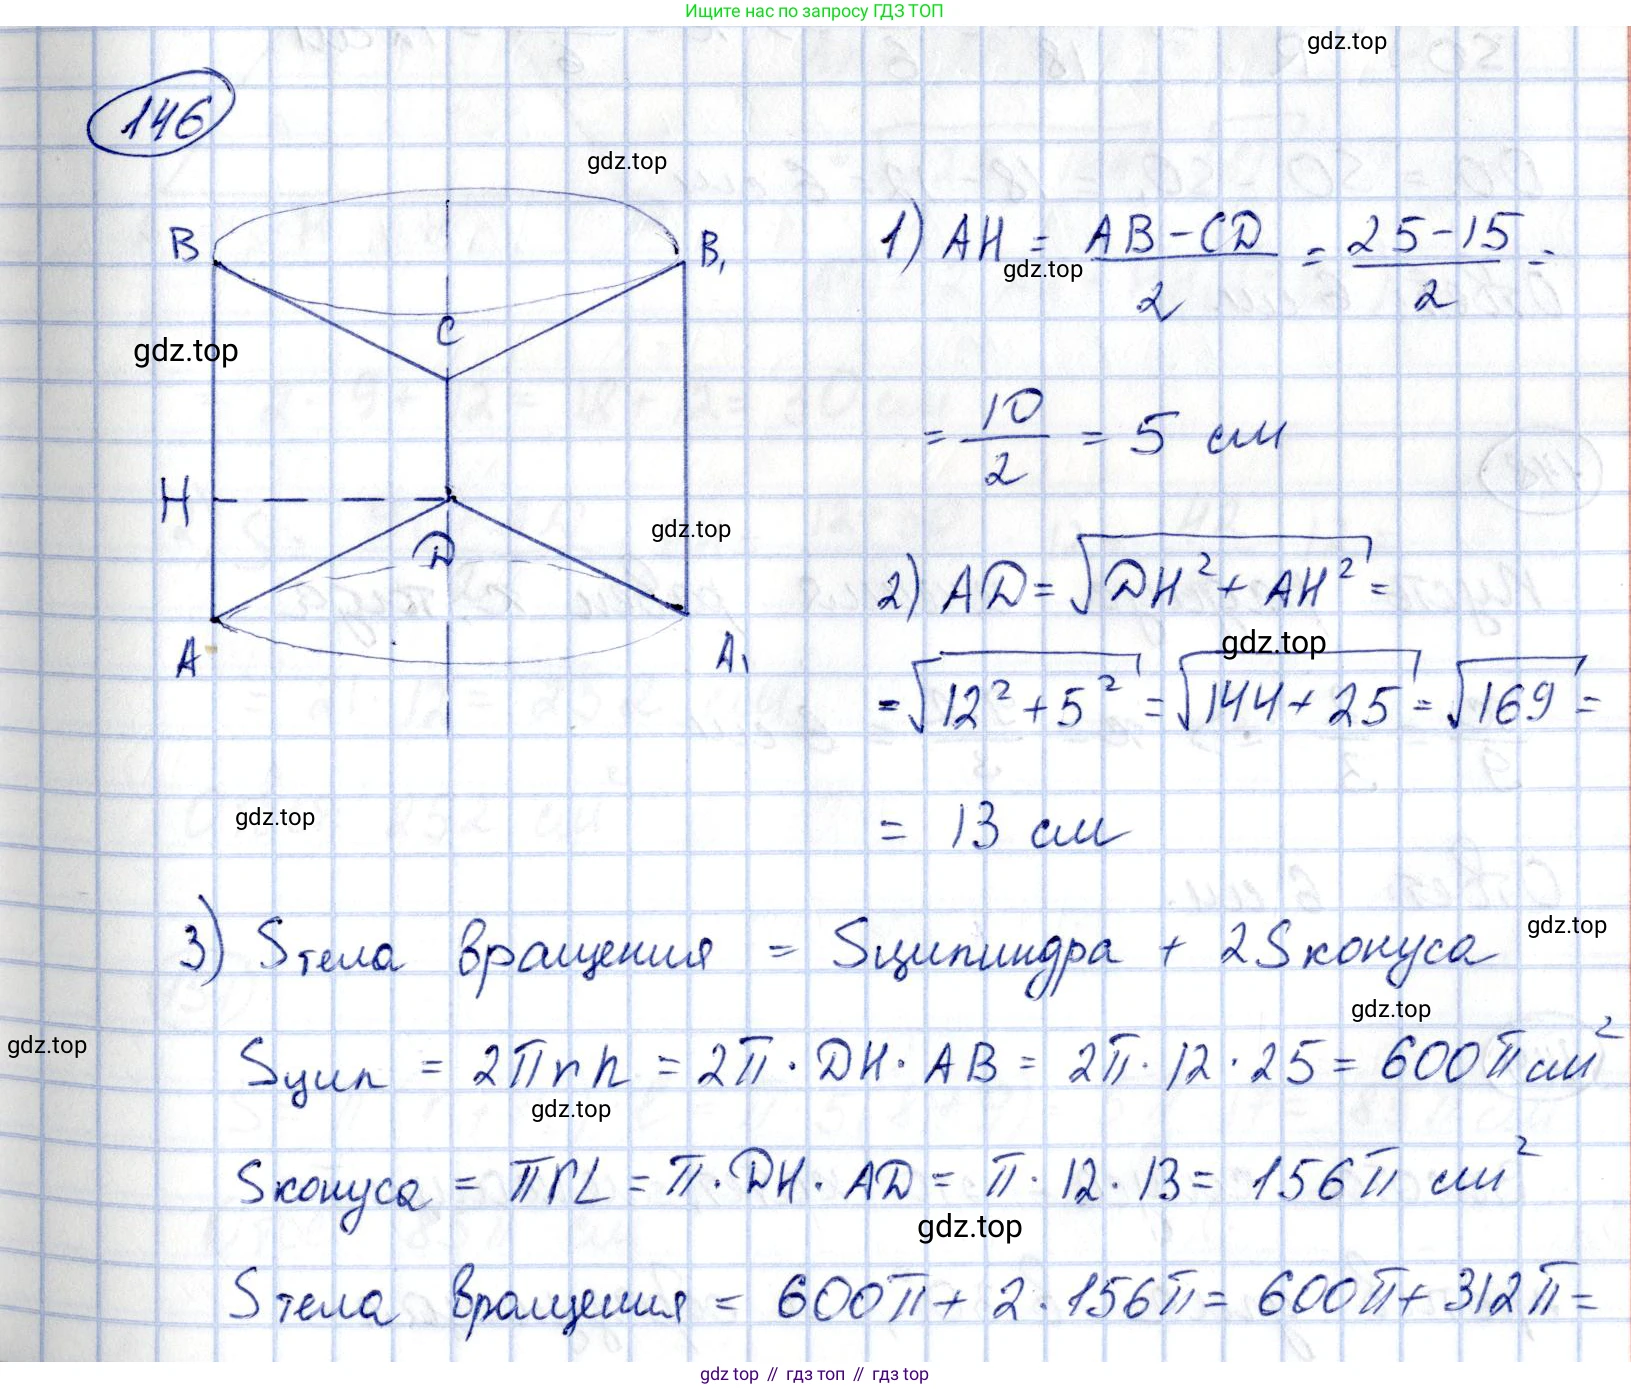 Ищите нас по запросу ГДЗ ТОП
gdz.top
146
gdz.top
B
B₁
C
gdz.top
H
D
gdz.top
A
A₁
1) AH = (AB - CD)/2 = (25 - 15)/2 =
gdz.top
= 10/2 = 5 см
2) AD = √(DH² + AH²) =
gdz.top
= √(12² + 5²) = √(144 + 25) = √169 =
= 13 см
gdz.top
gdz.top
3) Sтела вращения = Sцилиндра + 2Sконуса
gdz.top
gdz.top
Sцил = 2πrh = 2π · DH · AB = 2π · 12 · 25 = 600π см²
gdz.top
Sконуса = πrL = π · DH · AD = π · 12 · 13 = 156π см²
gdz.top
Sтела вращения = 600π + 2 · 156π = 600π + 312π =
gdz top // гдз топ // gdz.top